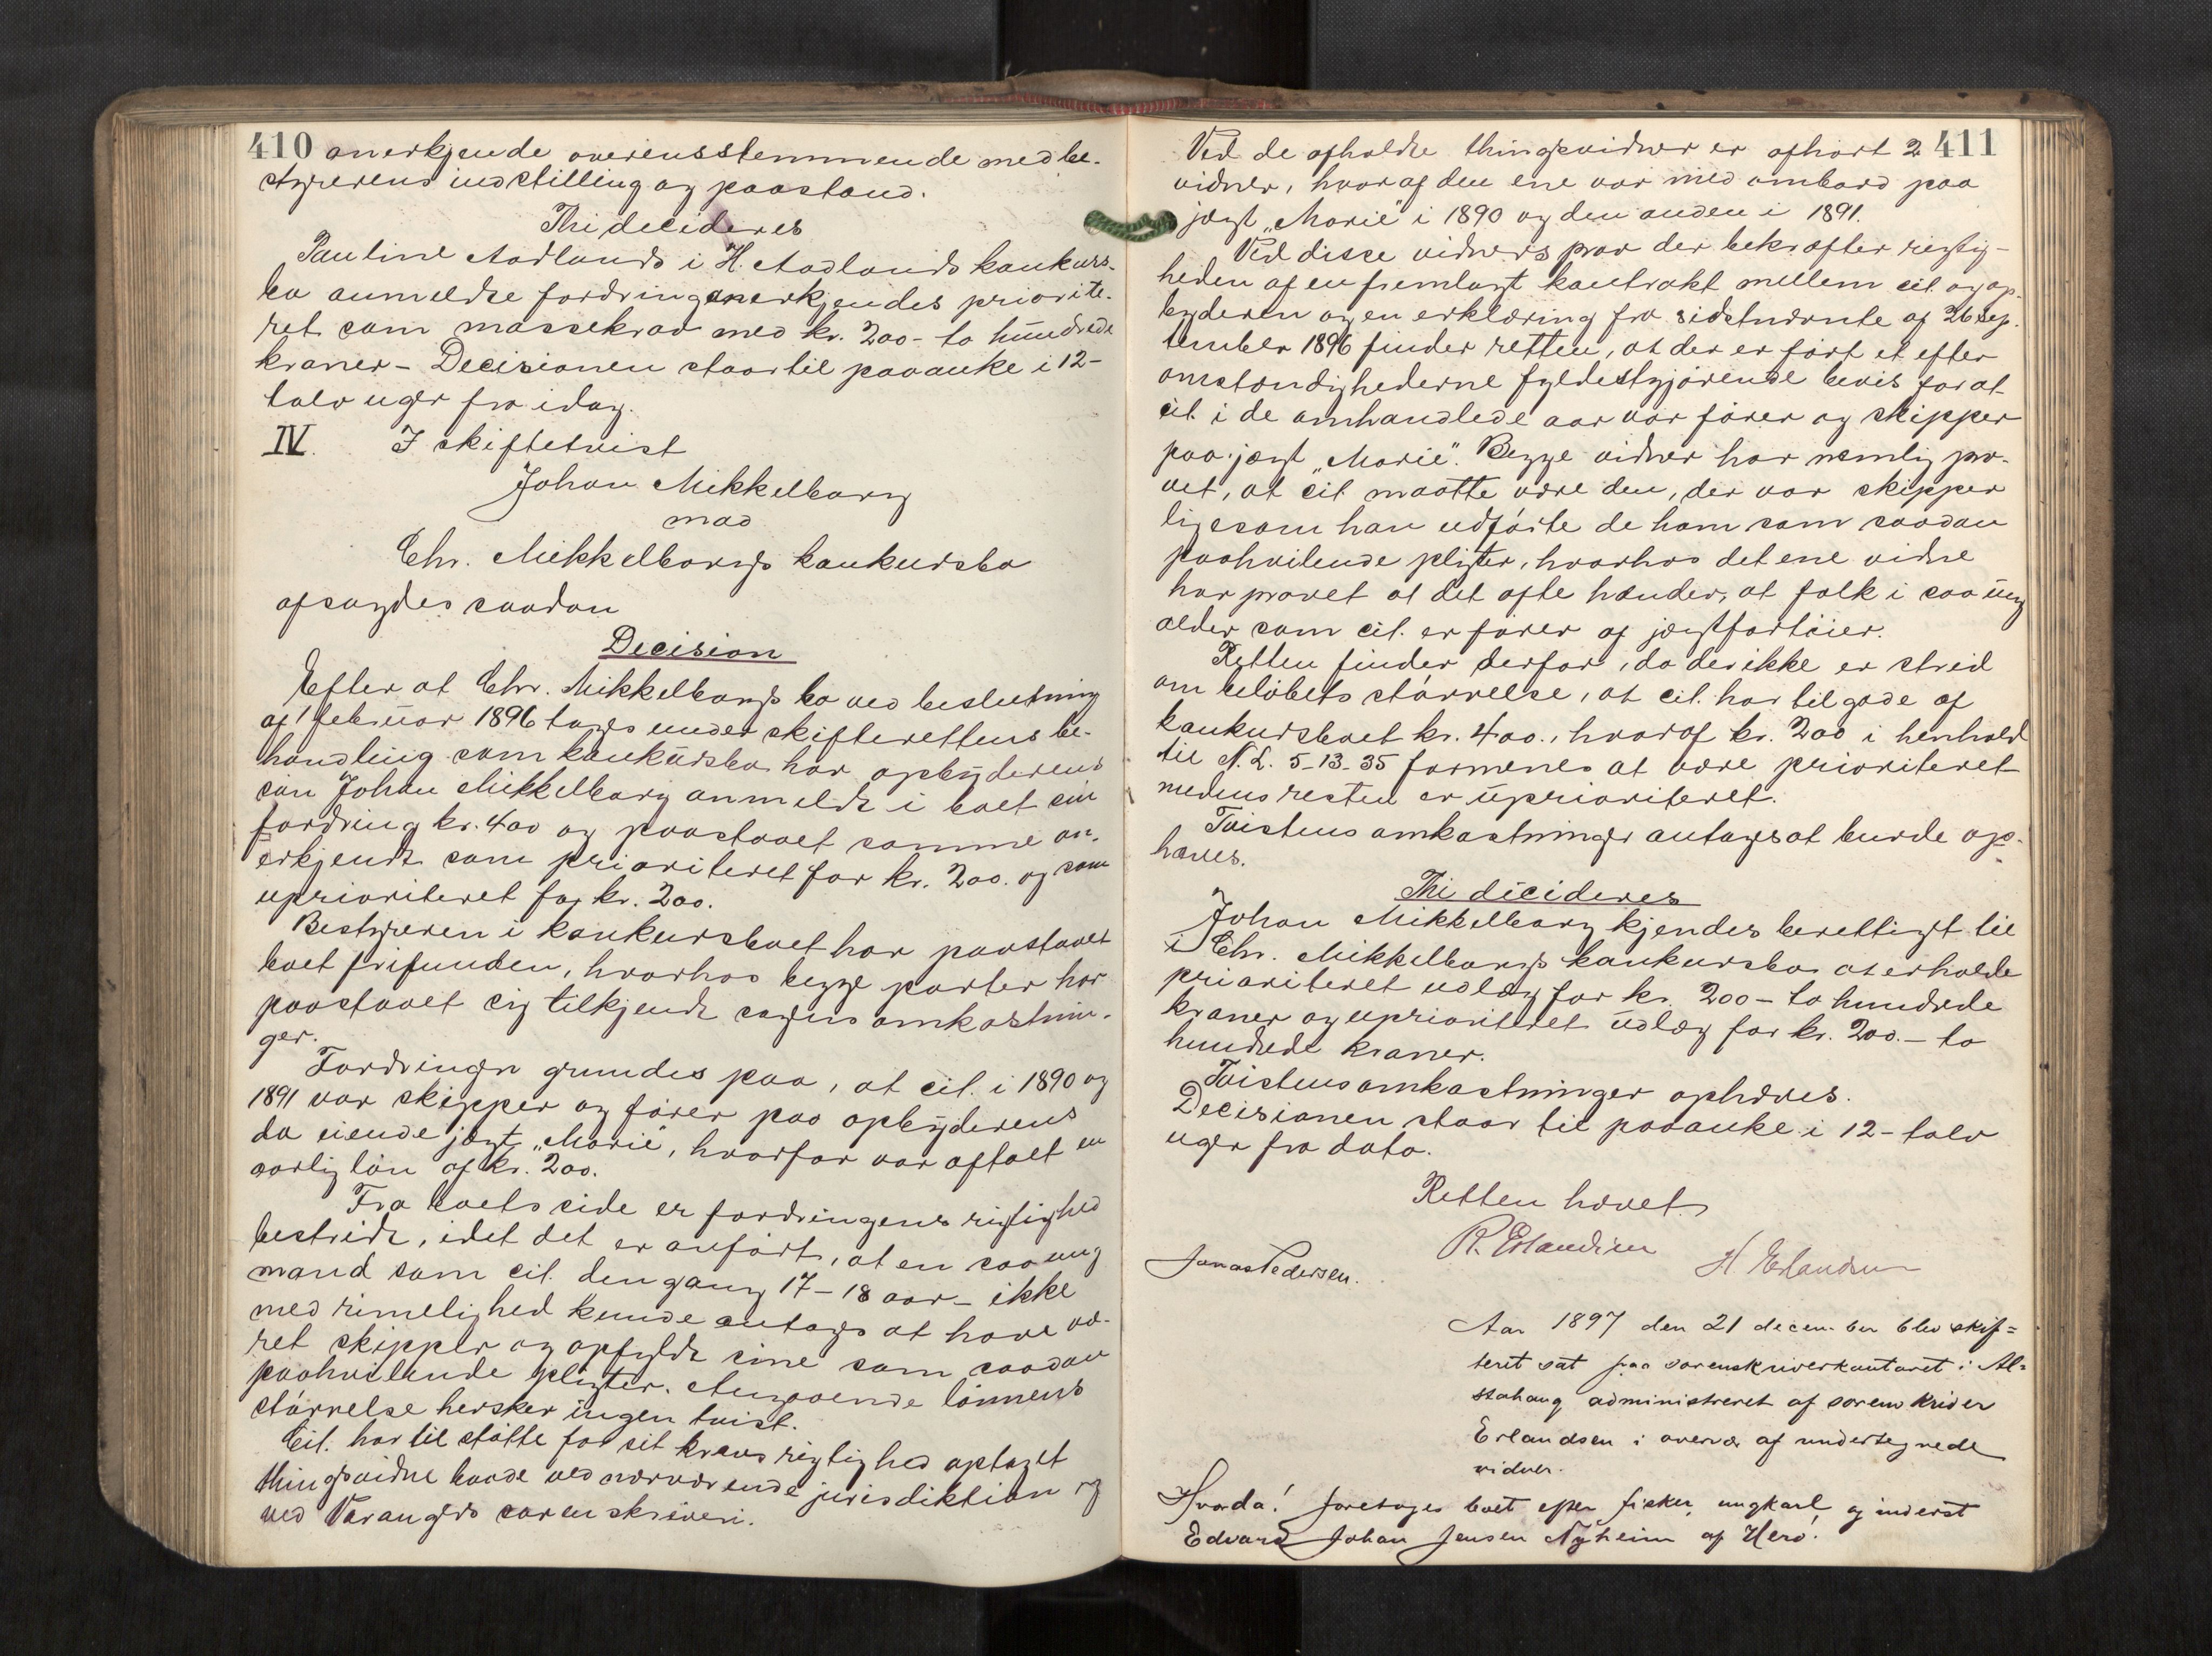 410 anerkjende overensstemmende med be-
styrerens indstilling og paastand.
Thi decideres
Pauline Aadlands i H. Aadlands konkurs-
bo anmeldte fordring anerkjendes priorite-
ret som massekrav med kr. 200 - to hundrede
kroner - Decisionen staar til paaanke i 12 -
tolv uger fra idag.
IV. I skiftetvist
Johan Mikkelborg
mod
Chr. Mikkelborgs konkursbo
afsagdes saadan
Decision
Efter at Chr. Mikkelborgs bo ved beslutning
af 1 februar 1896 toges under skifterettens be-
handling som konkursbo har opbyderens
søn Johan Mikkelborg anmeldt i boet sin
fordring kr. 400 og paastaaet samme an-
erkjendt som prioriteret for kr. 200. og som
uprioriteret for kr. 200.
Bestyreren i konkursboet har paastaaet
boet frifunden, hvorhos begge parter har
paastaaet sig tilkjendt sagens omkostnin-
ger.
Fordringen grundes paa, at cit. i 1890 og
1891 var skipper og fører paa opbyderens
da eiende jægt „Marie", hvorfor var aftalt en
aarlig løn af kr. 200.
Fra boets side er fordringens rigtighed
bestridt, idet det er anført, at en saa ung
mand som cit. dengang 17 - 18 aar - ikke
med rimelighed kunde antages at have væ-
ret skipper og opfyldt sine som saadan
paahvilende pligter. Angaaende lønnens
størrelse hersker ingen tvist.
Cit. har til støtte for sit kravs rigtighed optaget
thingsvidne baade ved nærværende jurisdiktion og
ved Varangers sorenskriveri.
411
Ved de afholdte thingsvidner er afhørt 2
vidner, hvoraf den ene var med ombord paa
jægt „Marie" i 1890 og den anden i 1891.
Ved disse vidners prov der bekræfter rigtig-
heden af en fremlagt kontrakt mellem cit. og op-
byderen og en erklæring fra sidstnævnte af 26 sep-
tember 1896 finder retten, at der er ført et efter
omstændighederne fyldestgjørende bevis for at
cit. i de omhandlede aar var fører og skipper
paa jægt „Marie". Begge vidner har nemlig pro-
vet, at cit. maatte være den, der var skipper
ligesom han udførte de ham som saadan
paahvilende pligter, hvorhos det ene vidne
har provet at det ofte hænder, at folk i saa ung
alder som cit. er fører af jægtfartøier.
Retten finder derfor, da der ikke er strid
om beløbets størrelse, at cit. har tilgode af
konkursboet kr. 400., hvoraf kr. 200 i henhold
til N. L. 5-13-35 formenes at være prioriteret
medens resten er uprioriteret.
Tvistens omkostninger antages at burde op-
hæves.
Thi decideres
Johan Mikkelborg kjendes berettiget til
i Chr. Mikkelborgs konkursbo at erholde
prioriteret udlæg for kr. 200 - to hundrede
kroner og uprioriteret udlæg for kr. 200. - to
hundrede kroner.
Tvistens omkostninger ophæves.
Decisionen staar til paaanke i 12 - tolv
uger fra dato.
Retten hævet
R. Erlandsen
H. Erlandsen
Jonas Pedersen.
Aar 1897 den 21 december blev skif=
teret sat paa sorenskriverkontoret i Al=
stahaug administreret af sorenskriver
Erlandsen i overvær af undertegnede
vidner.
Hvorda! foretoges boet efter fisker, ungkarl og inderst
Edvard Johan Jensen Nyheim af Herø.